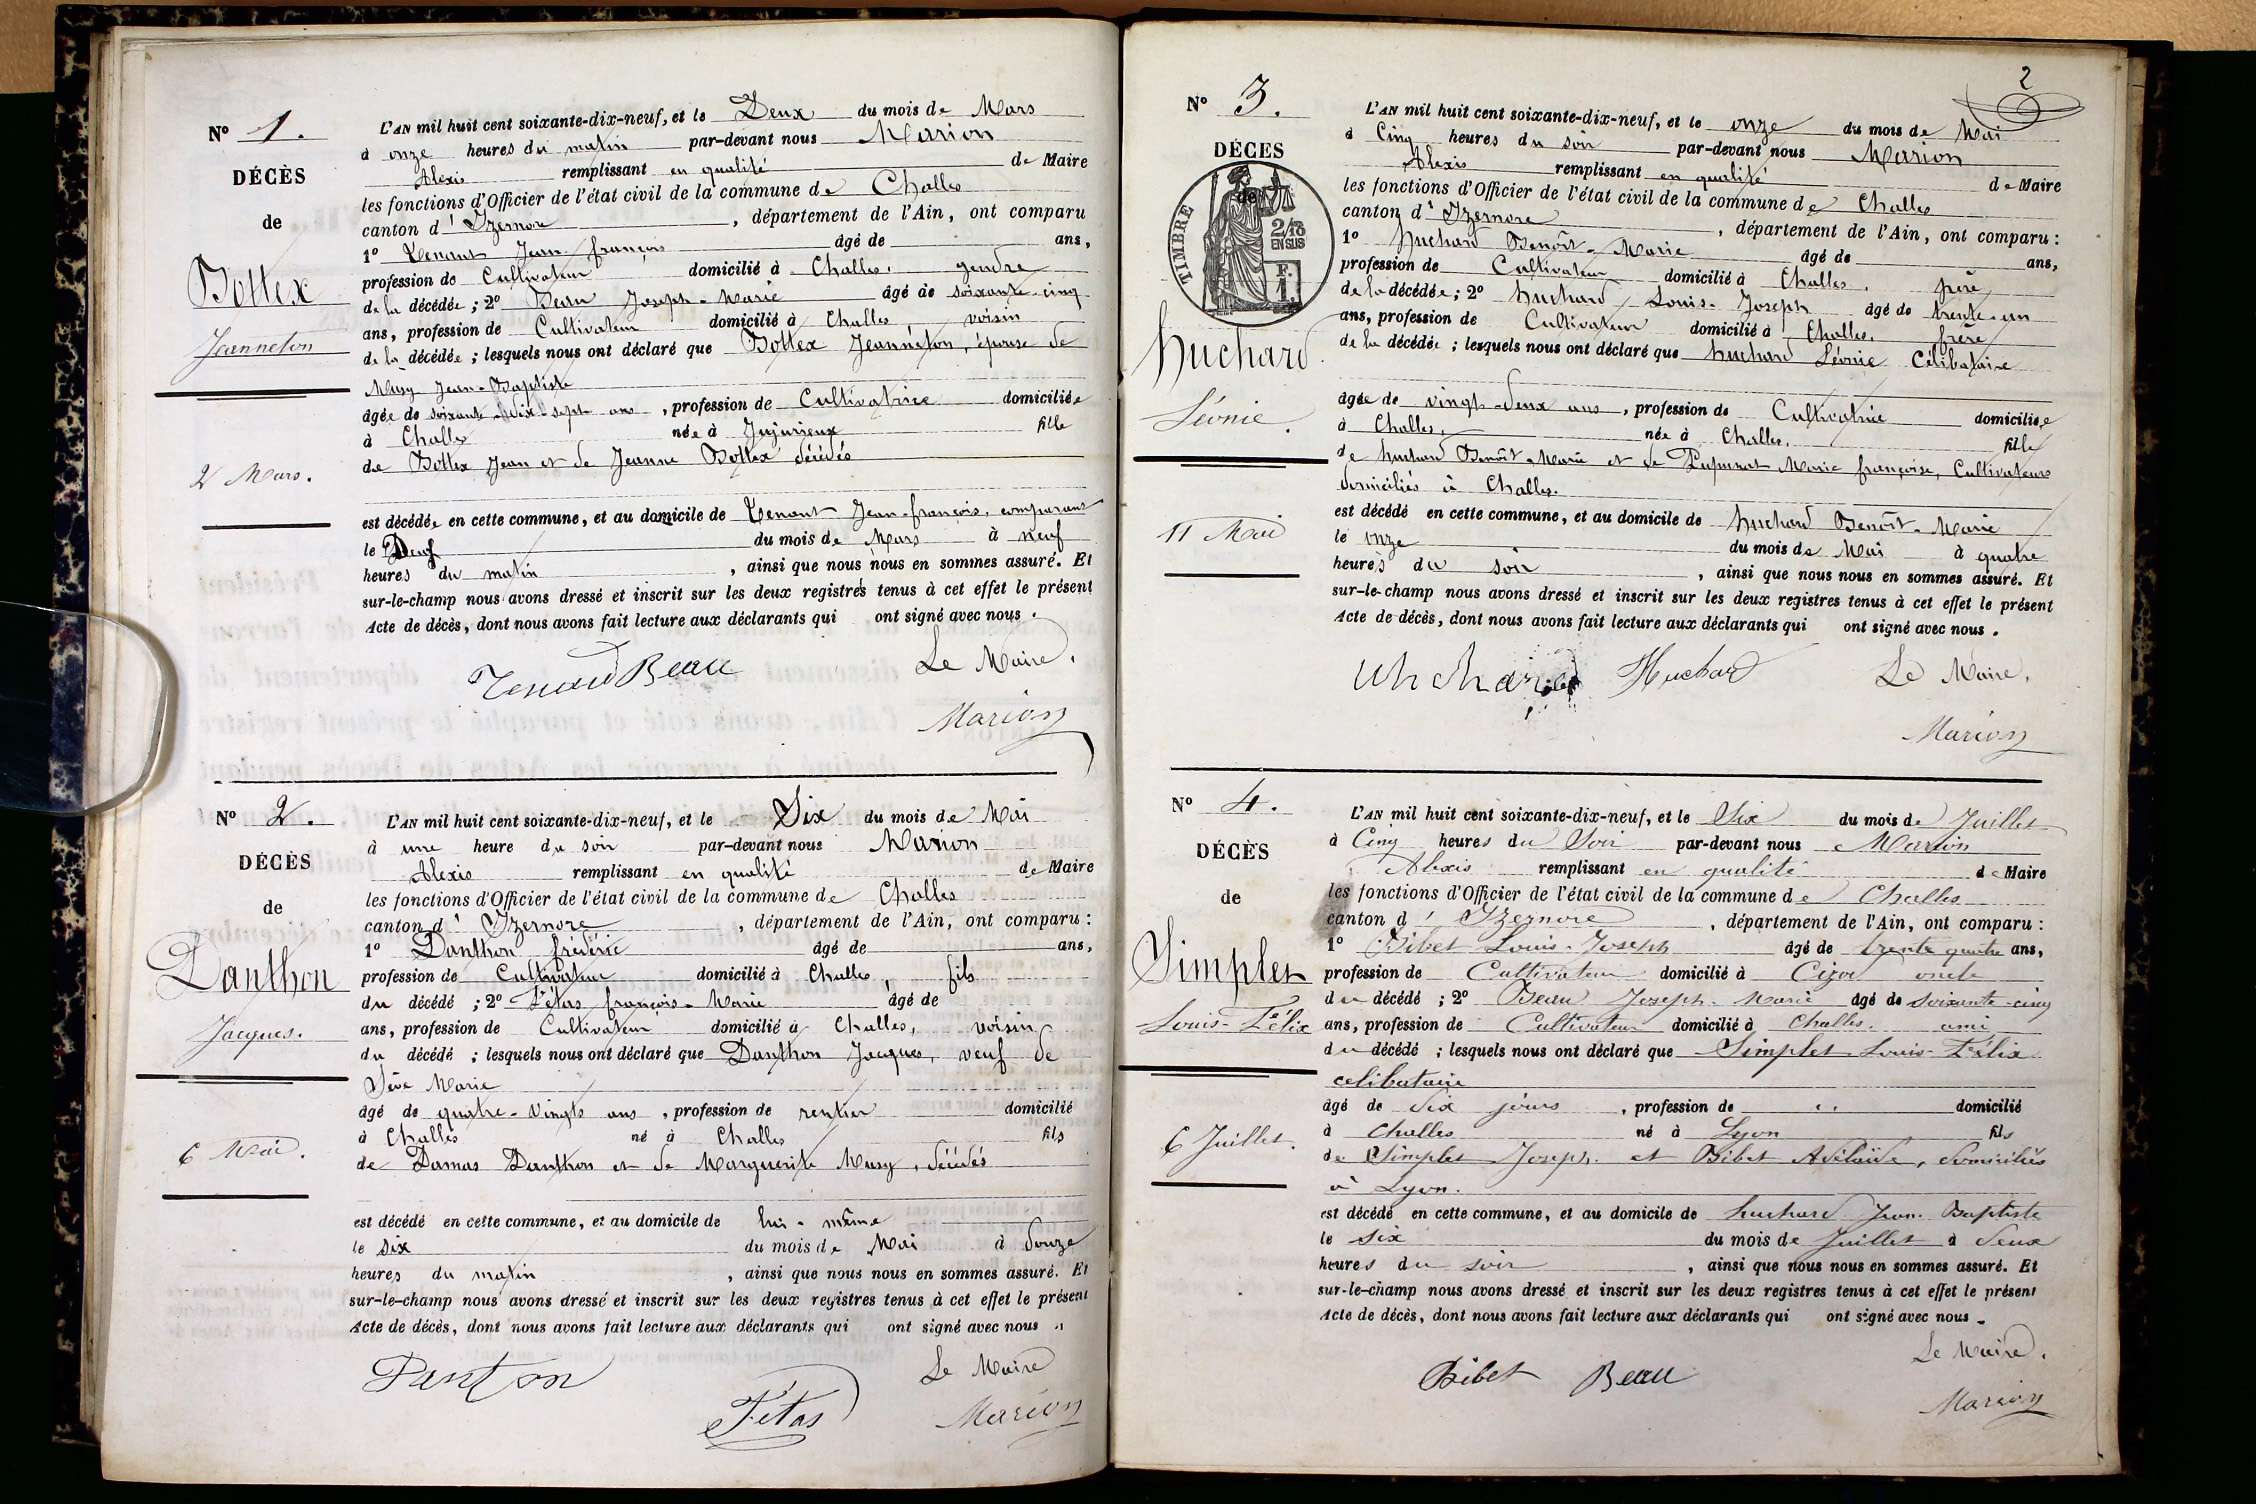 N° 1.
DÉCÈS
de
Bottex
Jeanneton
2 Mars.
L'AN mil huit cent soixante-dix-neuf, et le Deux du mois de Mars
à onze heures du matin par-devant nous Marion
Alexis remplissant en qualité de Maire
les fonctions d'Officier de l'état civil de la commune de Challes
canton d'Izernore, département de l'Ain, ont comparu
1° Tenant Jean-françois âgé de ans,
profession de Cultivateur domicilié à Challes. gendre
de la décédée ; 2° Beau Joseph-Marie âgé de soixante-cinq
ans, profession de Cultivateur domicilié à Challes voisin
de la décédée ; lesquels nous ont déclaré que Bottex Jeanneton, épouse de
Musy Jean-Baptiste
âgée de soixante-dix-sept ans, profession de Cultivatrice domiciliée
à Challes née à Jujurieux fille
de Bottex Jean et de Jeanne Bottex décédés
est décédée en cette commune, et au domicile de Tenant Jean-françois, comparant
le Deux du mois de Mars à neuf
heures du matin, ainsi que nous nous en sommes assuré. Et
sur-le-champ nous avons dressé et inscrit sur les deux registres tenus à cet effet le présent
Acte de décès, dont nous avons fait lecture aux déclarants qui ont signé avec nous.
Beau Le Maire,
Marion
N° 2.
DÉCÈS
de
Danthon
Jacques.
6 Mai.
L'AN mil huit cent soixante-dix-neuf, et le Six du mois de Mai
à une heure du soir par-devant nous Marion
Alexis remplissant en qualité de Maire
les fonctions d'Officier de l'état civil de la commune de Challes
canton d'Izernore, département de l'Ain, ont comparu :
1° Danthon frédéric âgé de ans,
profession de Cultivateur domicilié à Challes, fils
du décédé ; 2° Fétas françois-Marie âgé de
ans, profession de Cultivateur domicilié à Challes, voisin
du décédé ; lesquels nous ont déclaré que Danthon Jacques, veuf de
Sève Marie
âgé de quatre-vingts ans, profession de rentier domicilié
à Challes né à Challes fils
de Damas Danthon et de Marguerite Musy, décédés
est décédé en cette commune, et au domicile de lui-même
le six du mois de Mai à douze
heures du matin, ainsi que nous nous en sommes assuré. Et
sur-le-champ nous avons dressé et inscrit sur les deux registres tenus à cet effet le présent
Acte de décès, dont nous avons fait lecture aux déclarants qui ont signé avec nous.
Danton Fétas Le Maire
Marion
2
N° 3.
DÉCES
de
TIMBRE
2/10
EN SUS
F.
1.
Huchard
Léonie.
11 Mai
L'AN mil huit cent soixante-dix-neuf, et le onze du mois de Mai
à Cinq heures du soir par-devant nous Marion
Alexis remplissant en qualité de Maire
les fonctions d'Officier de l'état civil de la commune de Challes
canton d'Izernore, département de l'Ain, ont comparu :
1° Huchard Benoît-Marie âgé de ans,
profession de Cultivateur domicilié à Challes. père
de la décédée ; 2° Huchard Louis-Joseph âgé de trente-un
ans, profession de Cultivateur domicilié à Challes, frère
de la décédée ; lesquels nous ont déclaré que Huchard Léonie Célibataire
âgée de vingt-deux ans, profession de Cultivatrice domiciliée
à Challes, née à Challes. fille
de Huchard Benoît-Marie et de Marie françoise, Cultivateurs
domiciliés à Challes.
est décédé en cette commune, et au domicile de Huchard Benoît-Marie
le onze du mois de Mai à quatre
heures du soir, ainsi que nous nous en sommes assuré. Et
sur-le-champ nous avons dressé et inscrit sur les deux registres tenus à cet effet le présent
Acte de décès, dont nous avons fait lecture aux déclarants qui ont signé avec nous.
Huchard Le Maire,
Marion
N° 4.
DÉCÈS
de
Simplet
Louis-Félix
6 Juillet.
L'AN mil huit cent soixante-dix-neuf, et le Six du mois de Juillet
à Cinq heures du Soir par-devant nous Marion
Alexis remplissant en qualité de Maire
les fonctions d'Officier de l'état civil de la commune de Challes
canton d'Izernore, département de l'Ain, ont comparu :
1° Bibet Louis-Joseph âgé de trente quatre ans,
profession de Cultivateur domicilié à Cize oncle
du décédé ; 2° Beau Joseph-Marie âgé de soixante-cinq
ans, profession de Cultivateur domicilié à Challes. ami
du décédé ; lesquels nous ont déclaré que Simplet Louis-Félix
celibataire
âgé de Six jours, profession de " domicilié
à Challes né à Lyon fils
de Simplet Joseph et Bibet Adélaïde, domiciliés
à Lyon.
est décédé en cette commune, et au domicile de Huchard Jean-Baptiste
le six du mois de Juillet à deux
heures du soir, ainsi que nous nous en sommes assuré. Et
sur-le-champ nous avons dressé et inscrit sur les deux registres tenus à cet effet le présent
Acte de décès, dont nous avons fait lecture aux déclarants qui ont signé avec nous.
Bibet Beau Le Maire.
Marion